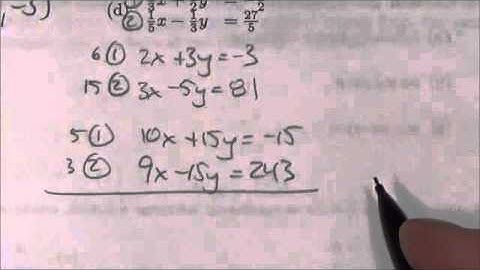 , -3)
(d) ① 1/3x + 1/2y = -1/2
② 1/5x - 1/3y = 27/5
6 ① 2x + 3y = -3
15 ② 3x - 5y = 81
5 ① 10x + 15y = -15
3 ② 9x - 15y = 243